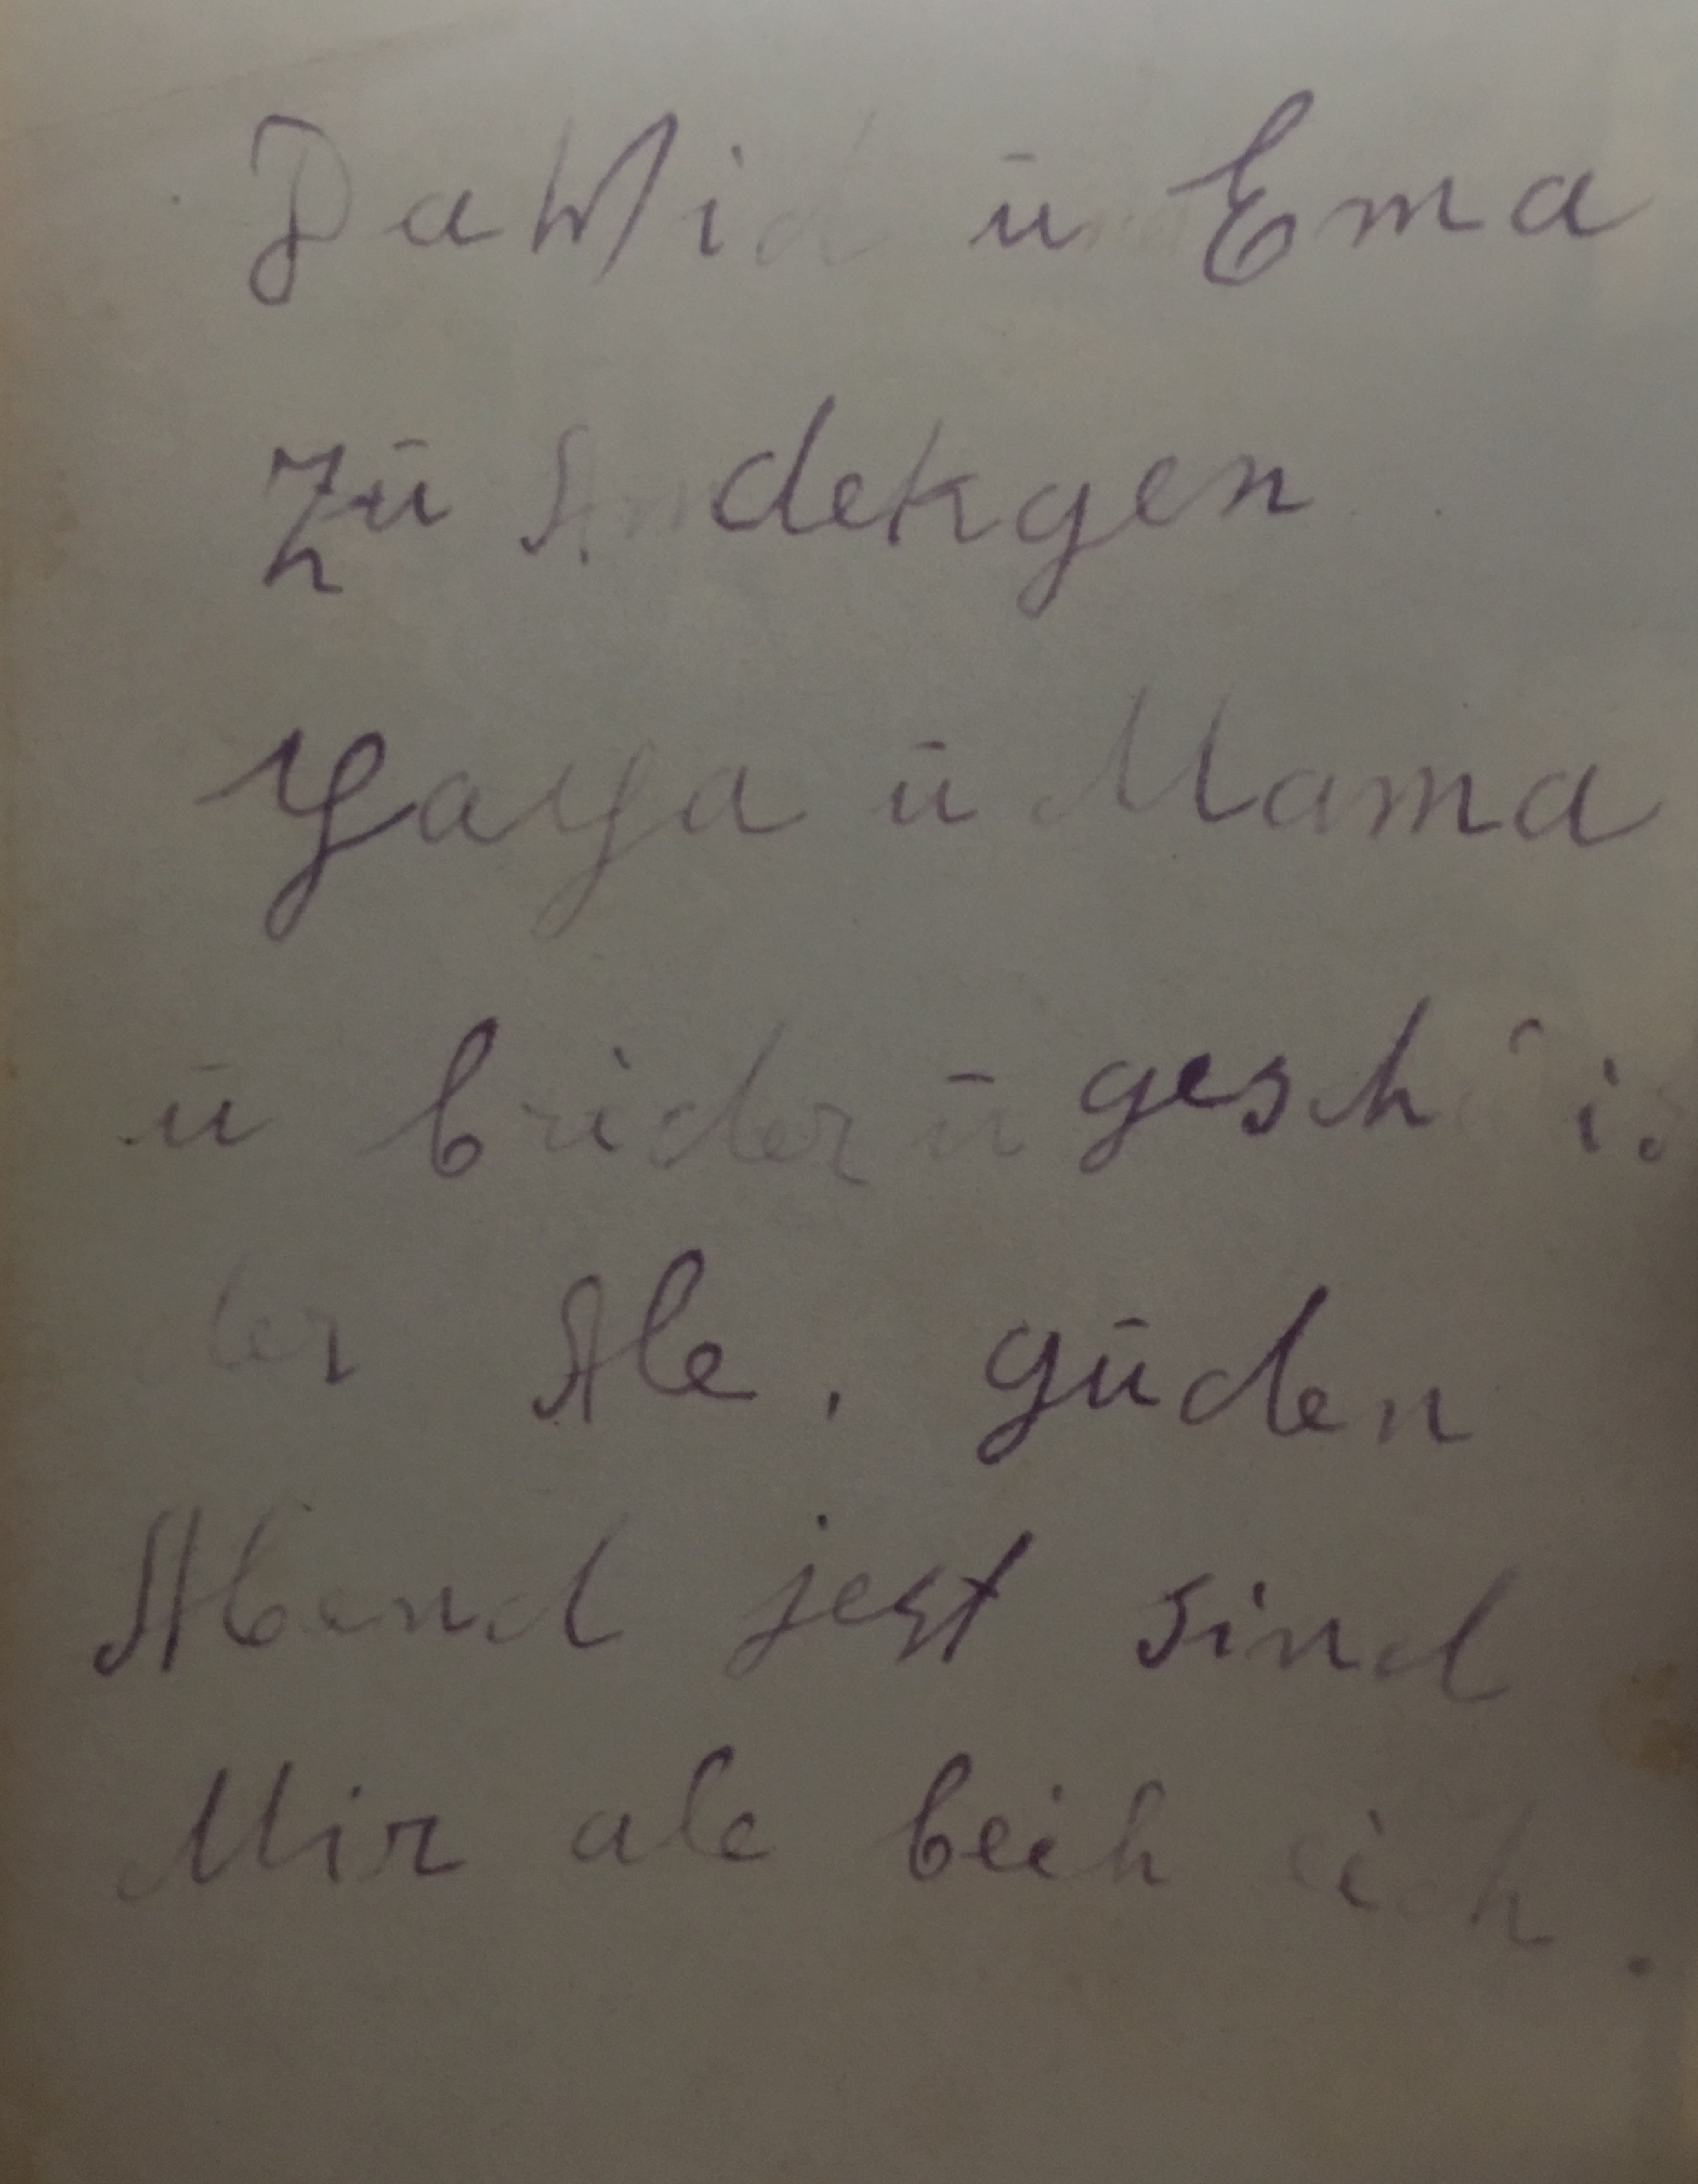 Dawid ū Ema
Zū Andekgen
Yaya ū Mama
ū brider ū geschwis
der Ale, gūden
Abend jest sind
Mir ale beih eich.